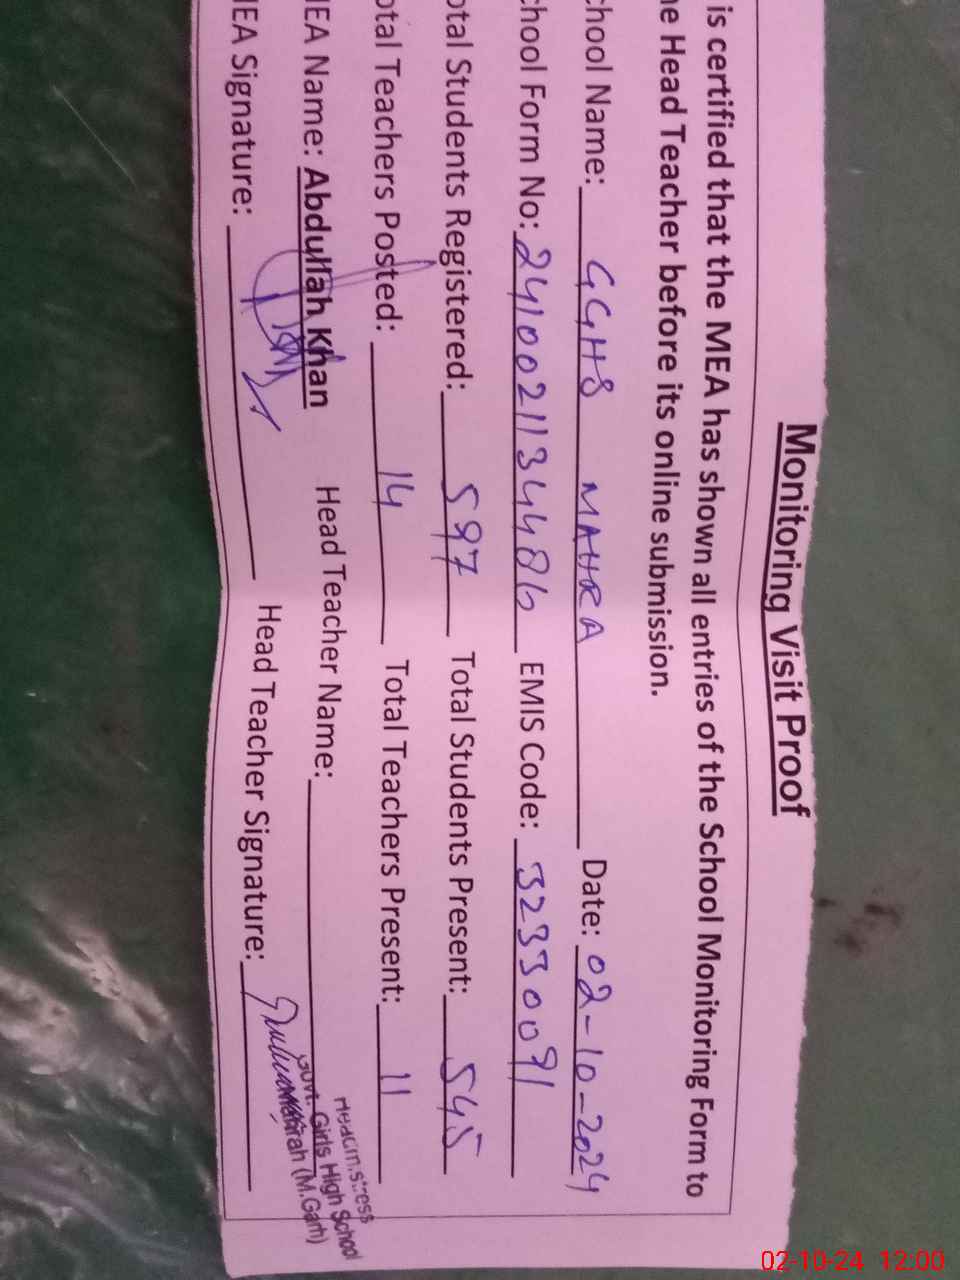 Monitoring Visit Proof
is certified that the MEA has shown all entries of the School Monitoring Form to
he Head Teacher before its online submission.
chool Name: GGHS MAHRA Date: 02-10-2024
chool Form No: 2410021134486 EMIS Code: 32330091
otal Students Registered: 597 Total Students Present: 545
otal Teachers Posted: 14 Total Teachers Present: 11
MEA Name: Abdullah Khan Head Teacher Name:
MEA Signature: Head Teacher Signature:
Headmistress
Govt. Girls High School
(M.Garh)
02-10-24 12:00